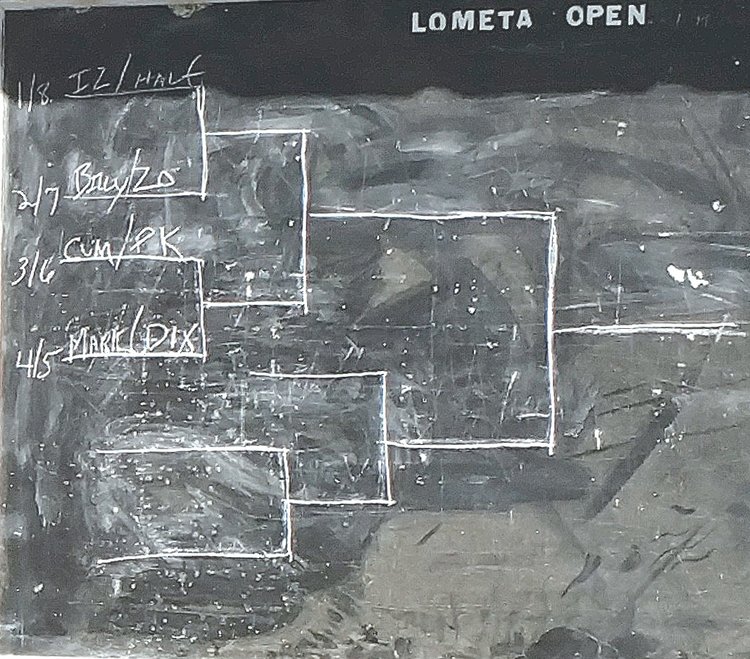 LOMETA OPEN
1/8 IZ/HALF
2/7 BILLY/ZO
3/6 CUM/PK
4/5 MARK/DIX